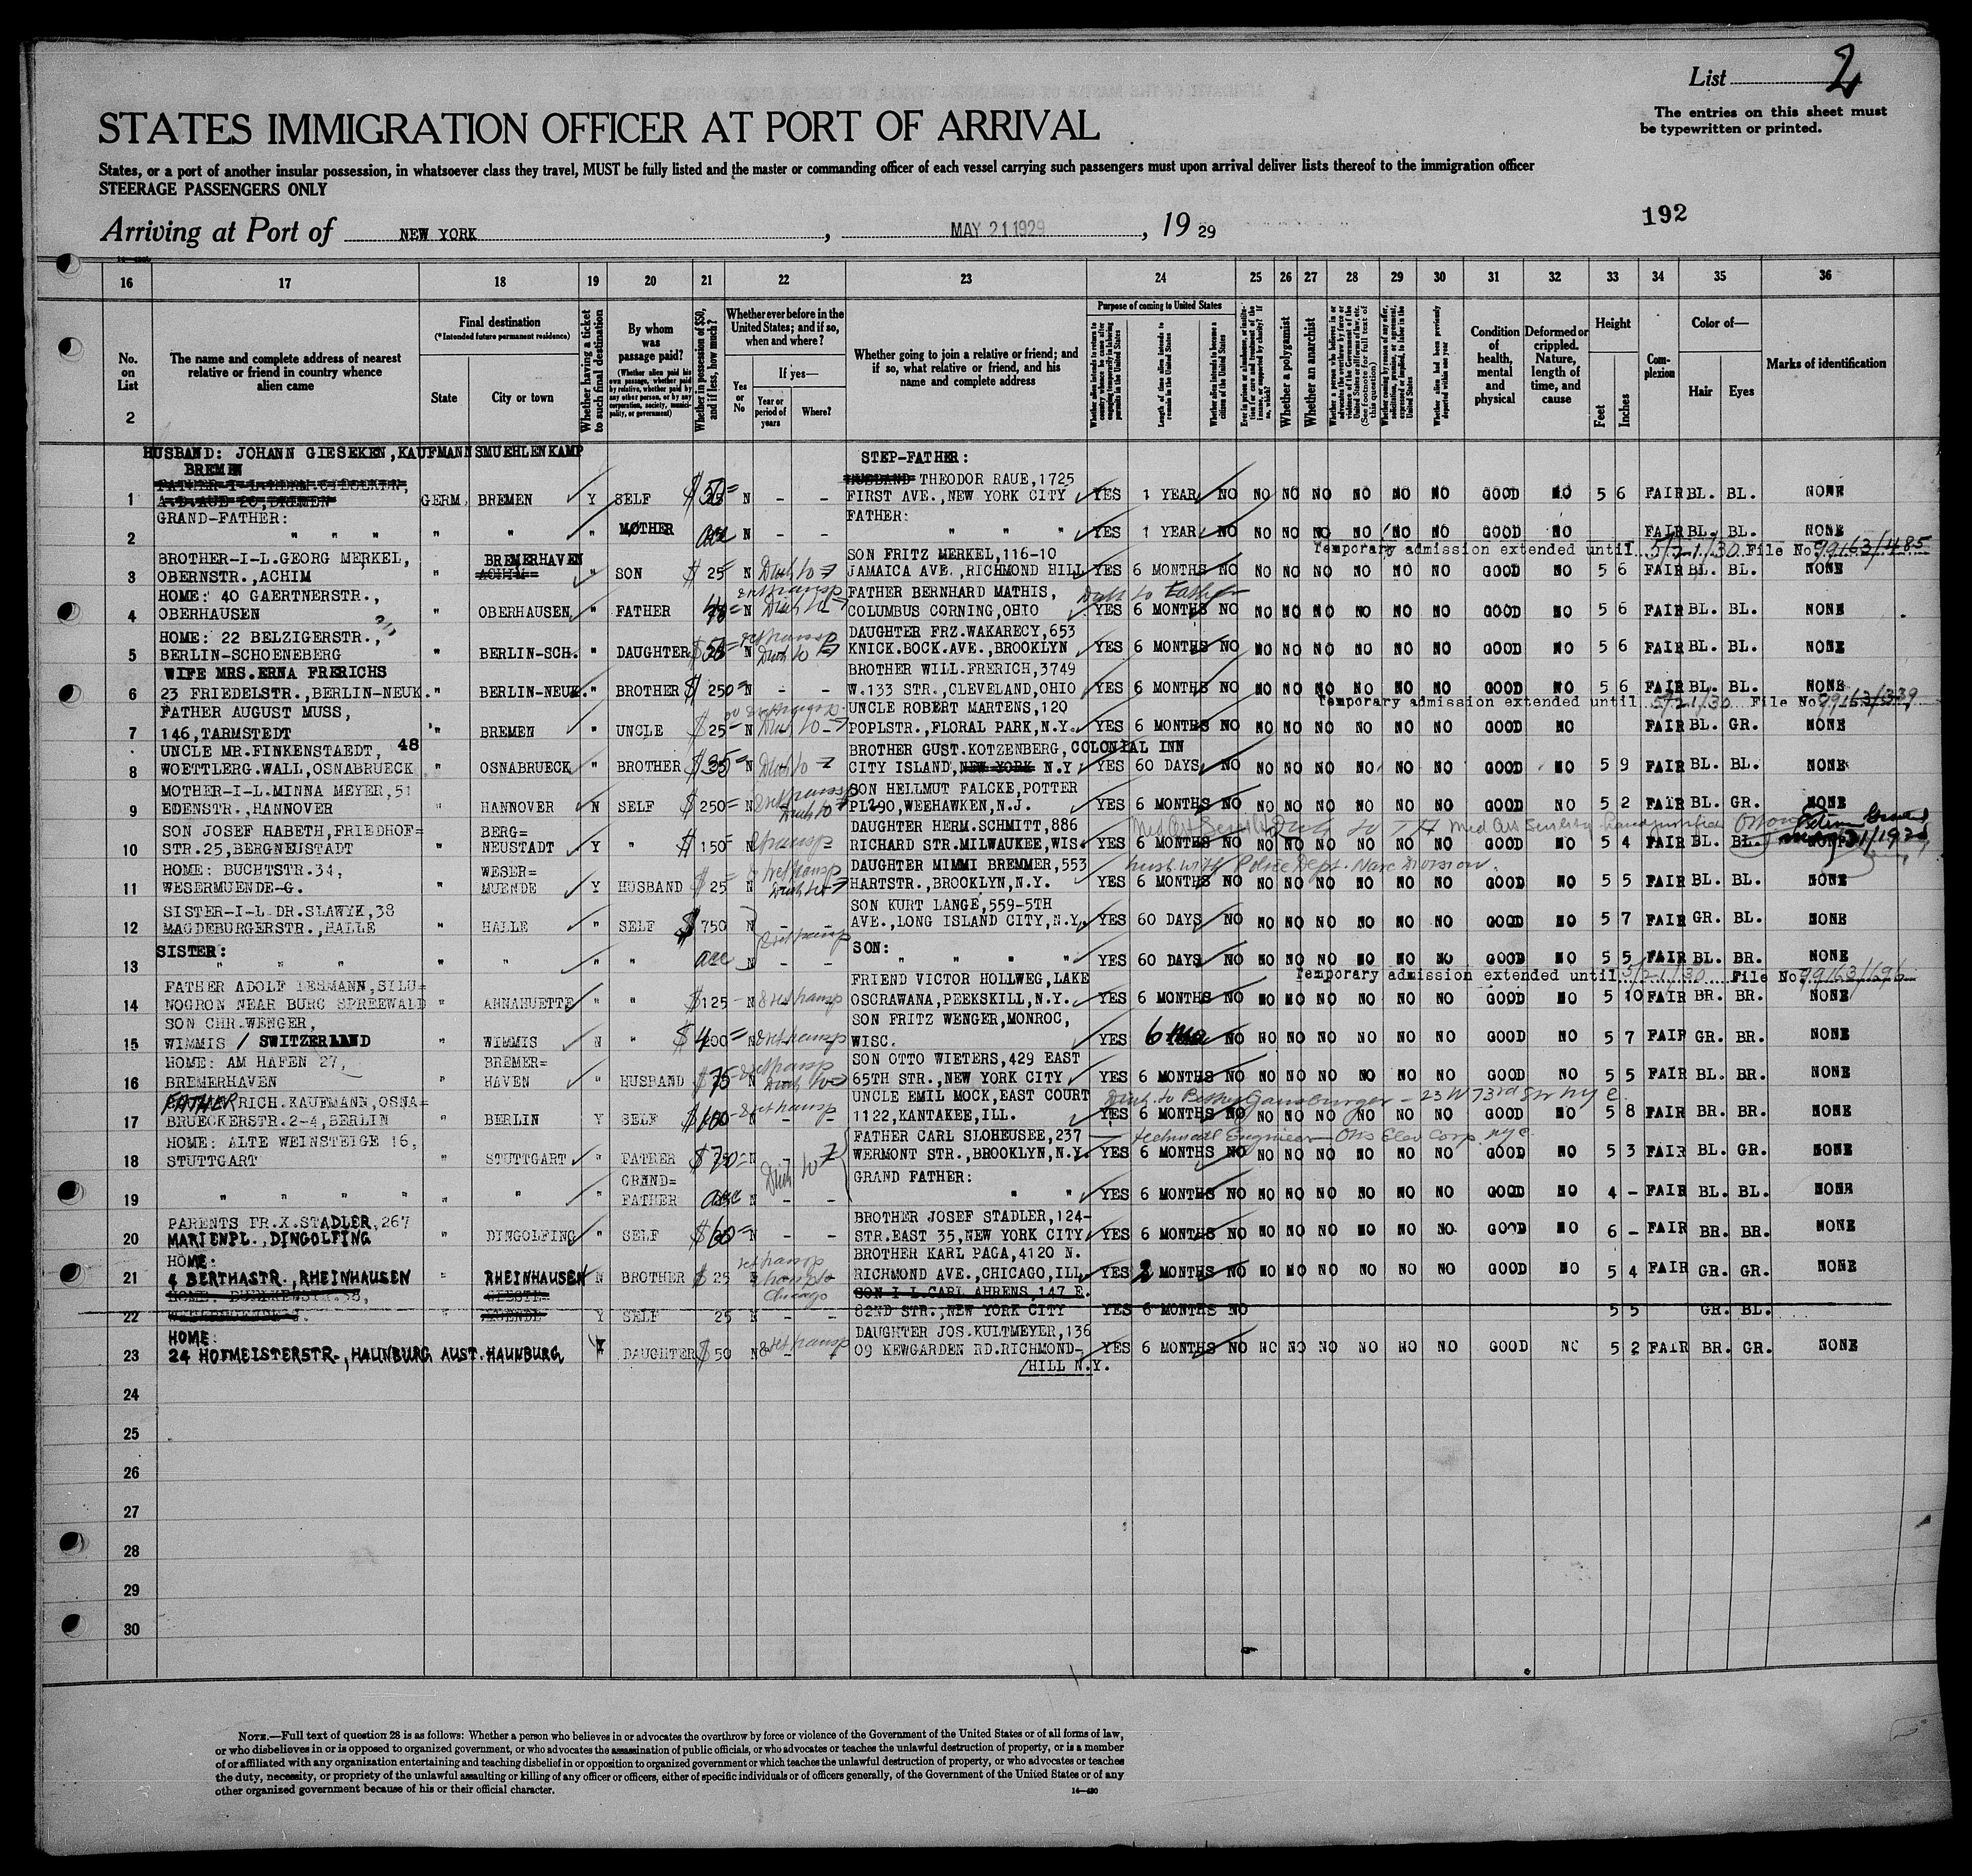 List 2
The entries on this sheet must
be typewritten or printed.
STATES IMMIGRATION OFFICER AT PORT OF ARRIVAL
States, or a port of another insular possession, in whatsoever class they travel, MUST be fully listed and the master or commanding officer of each vessel carrying such passengers must upon arrival deliver lists thereof to the immigration officer
STEERAGE PASSENGERS ONLY
Arriving at Port of NEW YORK, MAY 21 1929, 19 29
192
16 17 18 19 20 21 22 23 24 25 26 27 28 29 30 31 32 33 34 35 36
No. on List
2
The name and complete address of nearest relative or friend in country whence alien came
Final destination
(*Intended future permanent residence)
State
City or town
Whether having a ticket to such final destination
By whom was passage paid?
(Whether alien paid his own passage, whether paid by relative, whether paid by any other person, or by any corporation, society, municipality, or government)
Whether in possession of $50, and if less, how much?
Whether ever before in the United States; and if so, when and where?
Yes or No
If yes—
Year or period of years
Where?
Whether going to join a relative or friend; and if so, what relative or friend, and his name and complete address
Purpose of coming to United States
Length of time alien intends to remain in the United States
Whether alien intends to become a citizen of the United States
Whether a polygamist
Whether an anarchist
(See footnote for full text of this question)
Whether alien had been previously deported within one year
Condition of health, mental and physical
Deformed or crippled. Nature, length of time, and cause
Height
Feet
Inches
Complexion
Color of—
Hair
Eyes
Marks of identification
HUSBAND: JOHANN GIESEKEN, KAUFMANNSMUEHLENKAMP
BREMEN
STEP-FATHER:
HUSBAND THEODOR RAUE, 1725
1 GERM. BREMEN Y SELF $ 50= N - - FIRST AVE., NEW YORK CITY YES 1 YEAR NO NO NO NO NO NO NO GOOD NO 5 6 FAIR BL. BL. NONE
GRAND-FATHER: FATHER:
2 " " " " " " " MOTHER acc N " " " YES 1 YEAR NO NO NO NO NO NO NO GOOD NO FAIR BL. BL. NONE
Temporary admission extended until 5/21/30 File No. 99163/485
BROTHER-I-L. GEORG MERKEL, BREMERHAVEN SON FRITZ MERKEL, 116-10
3 OBERNSTR., ACHIM " ACHIM " SON $ 25 N JAMAICA AVE., RICHMOND HILL YES 6 MONTHS NO NO NO NO NO NO NO GOOD NO 5 6 FAIR BL. BL. NONE
HOME: 40 GAERTNERSTR., FATHER BERNHARD MATHIS,
4 OBERHAUSEN " OBERHAUSEN " FATHER N COLUMBUS CORNING, OHIO YES 6 MONTHS NO NO NO NO NO NO NO GOOD NO 5 6 FAIR BL. BL. NONE
HOME: 22 BELZIGERSTR., DAUGHTER FRZ. WAKARECY, 653
5 BERLIN-SCHOENEBERG " BERLIN-SCH. " DAUGHTER N KNICK.BOCK.AVE., BROOKLYN YES 6 MONTHS NO NO NO NO NO NO NO GOOD NO 5 6 FAIR BL. BL. NONE
WIFE MRS. ERNA FRERICHS BROTHER WILL. FRERICH, 3749
6 23 FRIEDELSTR., BERLIN-NEUK. " BERLIN-NEUK. " BROTHER $ 250= N - - W.133 STR., CLEVELAND, OHIO YES 6 MONTHS NO NO NO NO NO NO NO GOOD NO 5 6 FAIR BL. BL. NONE
Temporary admission extended until 5/21/30 File No. 99163/339
FATHER AUGUST MUSS, UNCLE ROBERT MARTENS, 120
7 146, TARMSTEDT " BREMEN " UNCLE $ 25 N POPLSTR., FLORAL PARK, N.Y. YES 6 MONTHS NO NO NO NO NO NO NO GOOD NO FAIR BL. GR. NONE
UNCLE MR. FINKENSTAEDT, 48 BROTHER GUST. KOTZENBERG, COLONIAL INN
8 WOETTLERG. WALL, OSNABRUECK " OSNABRUECK " BROTHER $ 35= N CITY ISLAND, NEW YORK N.Y. YES 60 DAYS NO NO NO NO NO NO NO GOOD NO 5 9 FAIR BL. BL. NONE
MOTHER-I-L. MINNA MEYER, 51 SON HELLMUT FALCKE, POTTER
9 EDENSTR., HANNOVER " HANNOVER N SELF $ 250= N PL290, WEEHAWKEN, N.J. YES 6 MONTHS NO NO NO NO NO NO NO GOOD NO 5 2 FAIR BL. GR. NONE
SON JOSEF HABETH, FRIEDHOF= BERG= DAUGHTER HERM. SCHMITT, 886
10 STR. 25, BERGNEUSTADT " NEUSTADT Y " $ 150 N RICHARD STR. MILWAUKEE, WIS. YES 6 MONTHS NO NO NO NO NO NO NO GOOD NO 5 4 FAIR BL. BL. NONE
HOME: BUCHTSTR. 34, WESER= DAUGHTER MIMMI BREMMER, 553 husb with Police Dept. Narc Division.
11 WESERMUENDE-G. " MUENDE Y HUSBAND $ 25 N HARTSTR., BROOKLYN, N.Y. YES 6 MONTHS NO NO NO NO NO NO NO GOOD NO 5 5 FAIR BL. BL. NONE
SISTER-I-L DR. SLAWYK, 38 SON KURT LANGE, 559-5TH
12 MAGDEBURGERSTR., HALLE " HALLE " SELF $ 750 N - - AVE., LONG ISLAND CITY, N.Y. YES 60 DAYS NO NO NO NO NO NO NO GOOD NO 5 7 FAIR GR. BL. NONE
SISTER: SON:
13 " " " " " " " acc N - - " " " YES 60 DAYS NO NO NO NO NO NO NO GOOD NO 5 5 FAIR BL. BR. NONE
Temporary admission extended until 5/21/30 File No. 99163/696
FATHER ADOLF LESMANN, SILU= FRIEND VICTOR HOLLWEG, LAKE
14 NOGRON NEAR BURG SPREEWALD " ANNAHUETTE " " $ 125 N OSCRAWANA, PEEKSKILL, N.Y. YES 6 MONTHS NO NO NO NO NO NO NO GOOD NO 5 10 FAIR BR. BR. NONE
SON CHR. WENGER, SON FRITZ WENGER, MONROC,
15 WIMMIS / SWITZERLAND " WIMMIS N " $ 400= N WISC. YES 6 mo NO NO NO NO NO NO NO GOOD NO 5 7 FAIR GR. BR. NONE
HOME: AM HAFEN 27, BREMER= SON OTTO WIETERS, 429 EAST
16 BREMERHAVEN " HAVEN " HUSBAND $ 75 N 65TH STR., NEW YORK CITY YES 6 MONTHS NO NO NO NO NO NO NO GOOD NO 5 5 FAIR BL. BR. NONE
FATHER RICH. KAUFMANN, OSNA= UNCLE EMIL MOCK, EAST COURT
17 BRUECKERSTR. 2-4, BERLIN " BERLIN Y SELF $ 100 N - - 1122, KANTAKEE, ILL. YES 6 MONTHS NO NO NO NO NO NO NO GOOD NO 5 8 FAIR BR. BR. NONE
HOME: ALTE WEINSTEIGE 16, FATHER CARL SLOHEUSEE, 237
18 STUTTGART " STUTTGART " FATHER $ 750= N WERMONT STR., BROOKLYN, N.Y. YES 6 MONTHS NO NO NO NO NO NO NO GOOD NO 5 3 FAIR BL. GR. NONE
GRAND= GRAND FATHER:
19 " " " " " " " FATHER acc N - - " " YES 6 MONTHS NO NO NO NO NO NO NO GOOD NO 4 - FAIR BL. BL. NONE
PARENTS FR. X. STADLER, 267 BROTHER JOSEF STADLER, 124-
20 MARIENPL., DINGOLFING " DINGOLFING " SELF $ 60= N - - STR. EAST 35, NEW YORK CITY YES 6 MONTHS NO NO NO NO NO NO NO GOOD NO 6 - FAIR BR. BR. NONE
HOME: BROTHER KARL PAGA, 4120 N.
21 4 BERTHASTR., RHEINHAUSEN " RHEINHAUSEN N BROTHER $ 25 N Chicago RICHMOND AVE., CHICAGO, ILL. YES 2 MONTHS NO NO NO NO NO NO NO GOOD NO 5 4 FAIR GR. GR. NONE
SON I L. CARL AHRENS, 147 E.
22 Y SELF 25 N - - 82ND STR., NEW YORK CITY YES 6 MONTHS NO 5 5 GR. BL.
HOME: DAUGHTER JOS. KULTMEYER, 136
23 24 HOFMEISTERSTR., HAUNBURG AUST. HAUNBURG Y DAUGHTER $ 50 N 09 KEWGARDEN RD. RICHMOND- YES 6 MONTHS NO NO NO NO NO NO NO GOOD NO 5 2 FAIR BR. GR. NONE
HILL N.Y.
24
25
26
27
28
29
30
NOTE.—Full text of question 28 is as follows: Whether a person who believes in or advocates the overthrow by force or violence of the Government of the United States or of all forms of law,
or who disbelieves in or is opposed to organized government, or who advocates the assassination of public officials, or who advocates or teaches the unlawful destruction of property, or is a member
of or affiliated with any organization entertaining and teaching disbelief in or opposition to organized government or which teaches the unlawful destruction of property, or who advocates or teaches
the duty, necessity, or propriety of the unlawful assaulting or killing of any officer or officers, either of specific individuals or of officers generally, of the Government of the United States or of any
other organized government because of his or their official character.
14—430